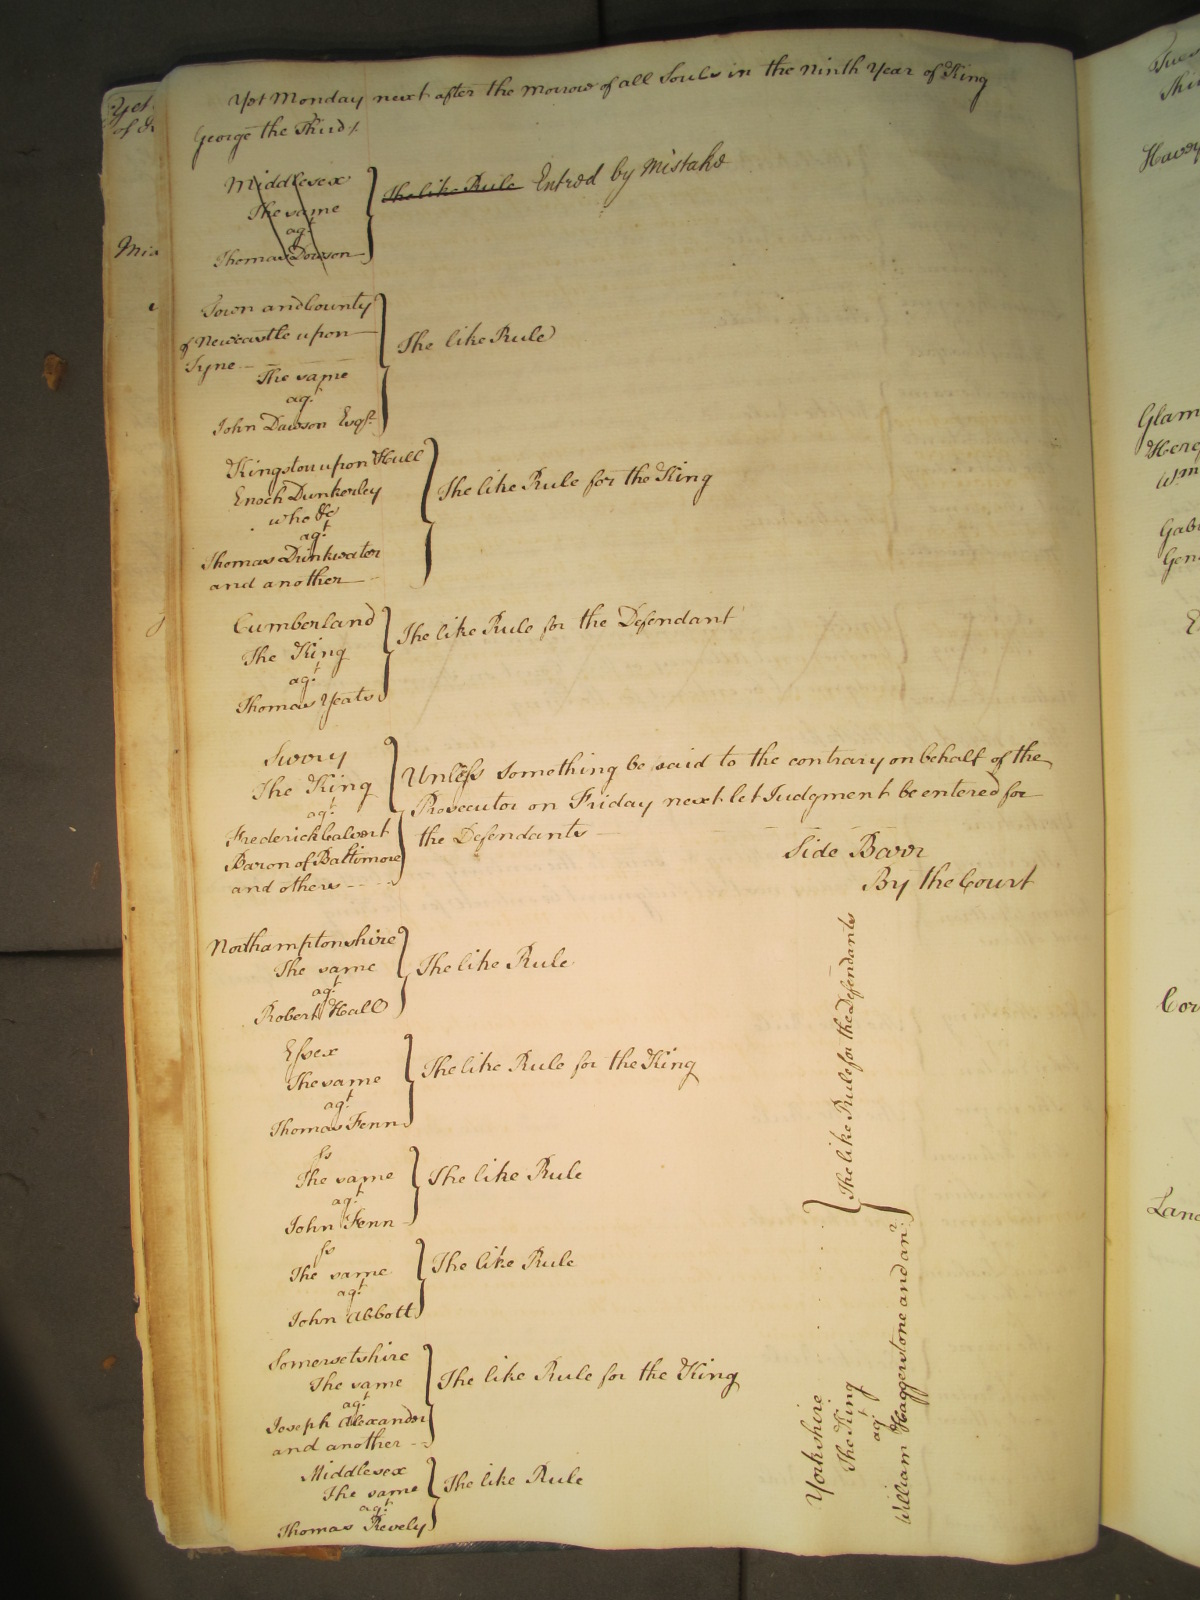 Yet Monday next after the morrow of all Souls in the Ninth Year of King
George the Third
Middlesex
The same
agt
Thomas Dowson
The like Rule Entred by Mistake
Town and County
of Newcastle upon
Tyne
The same
agt
John Dawson Esqr
The like Rule
Kingston upon Hull
Enoch Dunkerley
who &c
agt
Thomas Drinkwater
and another
The like Rule for the King
Cumberland
The King
agt
Thomas Yeats
The like Rule for the Defendant
Surry
The King
agt
Frederick Calvert
Baron of Baltimore
and others
Unless something be said to the contrary on behalf of the
Prosecutor on Friday next let Judgment be entered for
the Defendants
Side Barr
By the Court
Northamptonshire
The same
agt
Robert Hall
The like Rule
Essex
The same
agt
Thomas Fenn
The like Rule for the King
ss
The same
agt
John Fenn
The like Rule
ss
The same
agt
John Abbott
The like Rule
Somersetshire
The same
agt
Joseph Alexander
and another
The like Rule for the King
Middlesex
The same
agt
Thomas Revely
The like Rule
Yorkshire
The King
agt
William Haggerstone and anr
The like Rule for the Defendants